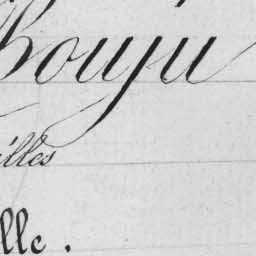 ouju
illes
lle.